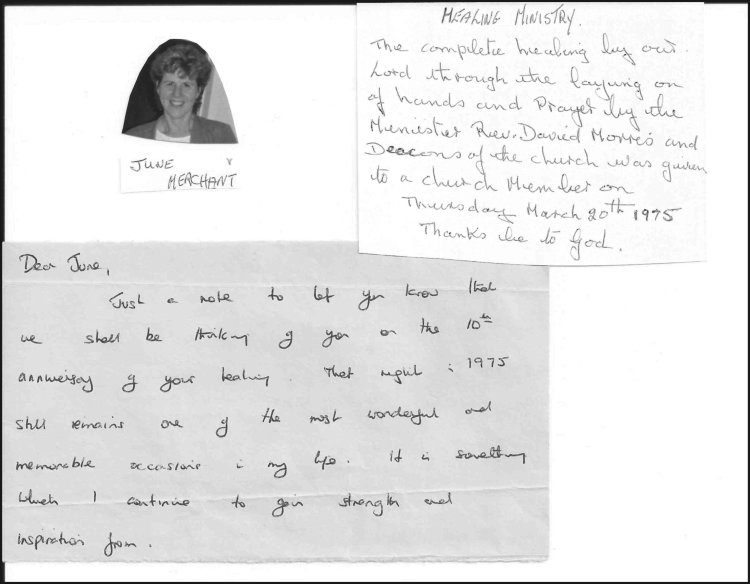 HEALING MINISTRY.
The complete healing by our
Lord through the laying on
of hands and Prayer by the
Meniestier Rev. David Morris and
Deacons of the church was given
to a church Member on
Thursday March 20th 1975
Thanks be to God.
JUNE
MERCHANT
Dear June,
Just a note to let you know that
we shall be thinking of you on the 10th
anniversary of your healing. That night in 1975
still remains one of the most wonderful and
memorable occasions in my life. It is something
which I continue to gain strength and
inspiration from.